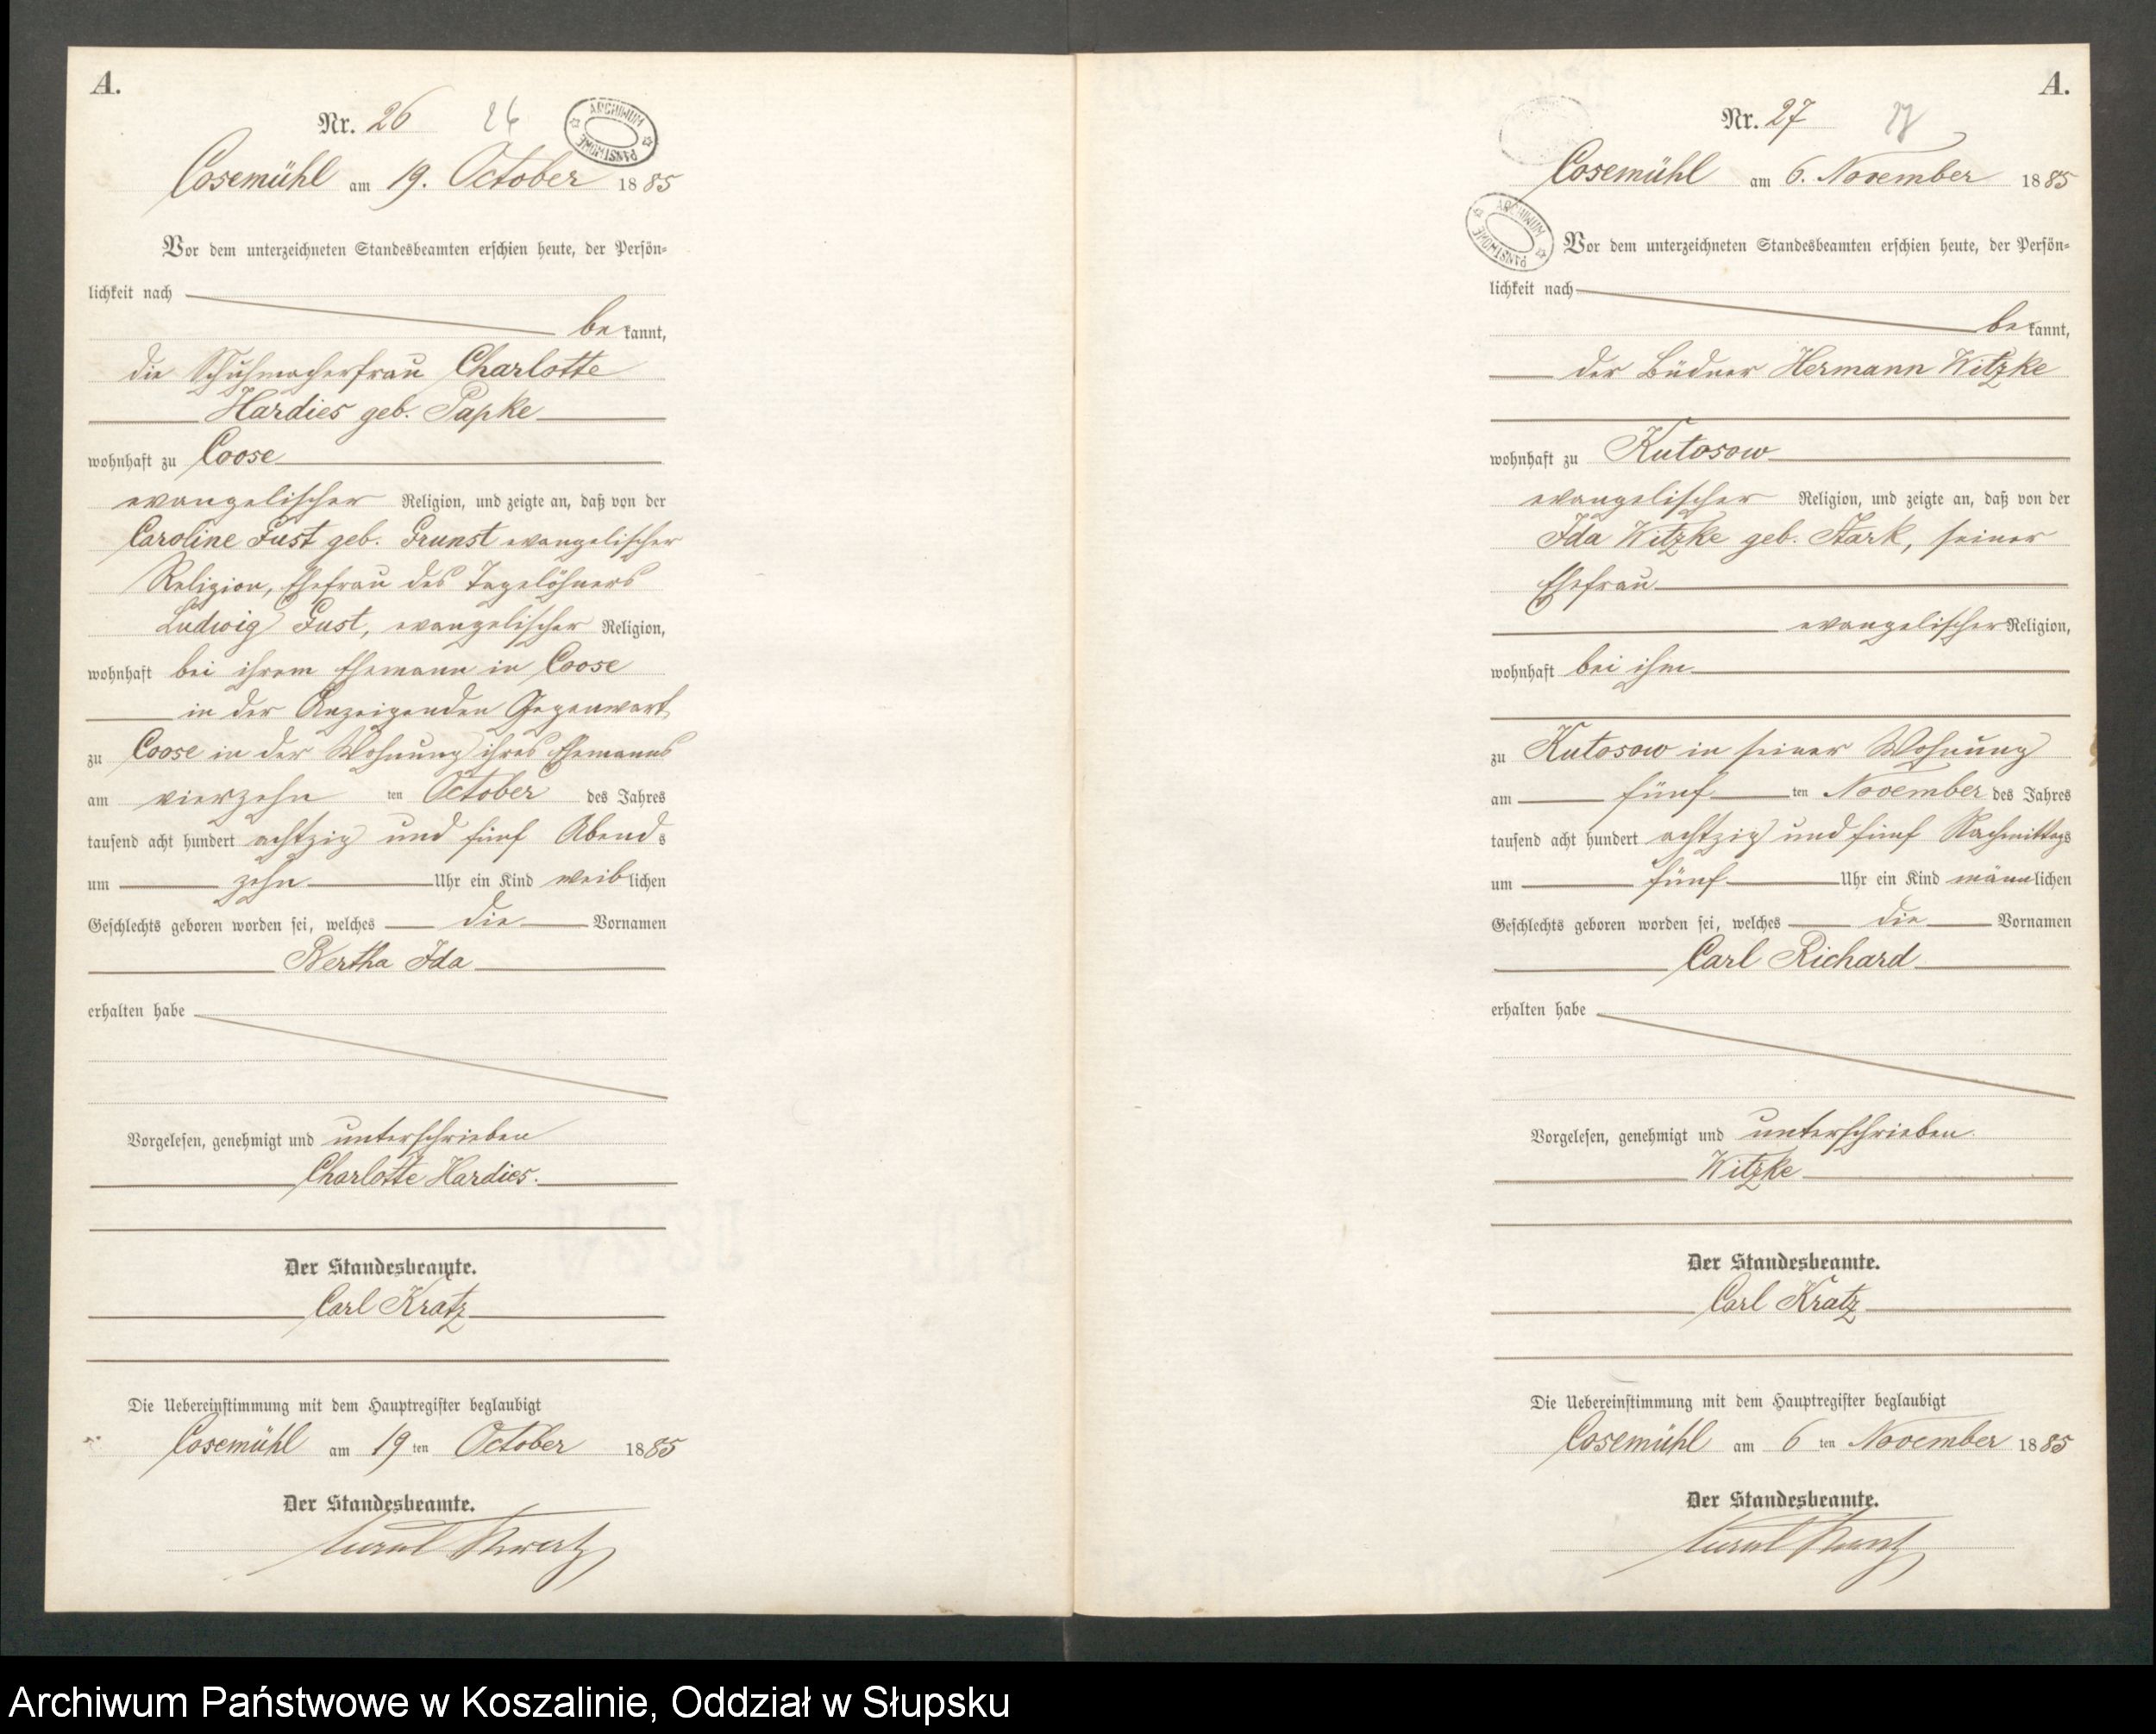 A.
Nr. 26 26
ARCHIWUM PAŃSTWOWE
Cosemühl am 19. October 1885
Vor dem unterzeichneten Standesbeamten erschien heute, der Persön=
lichkeit nach
bekannt,
die Schuhmacherfrau Charlotte
Hardies geb. Papke
wohnhaft zu Coose
evangelischer Religion, und zeigte an, daß von der
Caroline Fust geb. Grunst evangelischer
Religion, Ehefrau des Tagelöhners
Ludwig Fust, evangelischer Religion,
wohnhaft bei ihrem Ehemann in Coose
in der Anzeigenden Gegenwart
zu Coose in der Wohnung ihres Ehemanns
am vierzehn ten October des Jahres
tausend acht hundert achtzig und fünf Abends
um zehn Uhr ein Kind weiblichen
Geschlechts geboren worden sei, welches die Vornamen
Bertha Ida
erhalten habe
Vorgelesen, genehmigt und unterschrieben
Charlotte Hardies.
Der Standesbeamte.
Carl Kratz
Die Uebereinstimmung mit dem Hauptregister beglaubigt
Cosemühl am 19 ten October 1885
Der Standesbeamte.
A.
Nr. 27 27
Cosemühl am 6. November 1885
ARCHIWUM PAŃSTWOWE
Vor dem unterzeichneten Standesbeamten erschien heute, der Persön=
lichkeit nach
bekannt,
der Büdner Hermann Witzke
wohnhaft zu Kutosow
evangelischer Religion, und zeigte an, daß von der
Ida Witzke geb. Stark, seiner
Ehefrau
evangelischer Religion,
wohnhaft bei ihm
zu Kutosow in seiner Wohnung
am fünf ten November des Jahres
tausend acht hundert achtzig und fünf Nachmittags
um fünf Uhr ein Kind männlichen
Geschlechts geboren worden sei, welches die Vornamen
Carl Richard
erhalten habe
Vorgelesen, genehmigt und unterschrieben.
Witzke
Der Standesbeamte.
Carl Kratz
Die Uebereinstimmung mit dem Hauptregister beglaubigt
Cosemühl am 6 ten November 1885
Der Standesbeamte.
Archiwum Państwowe w Koszalinie, Oddział w Słupsku